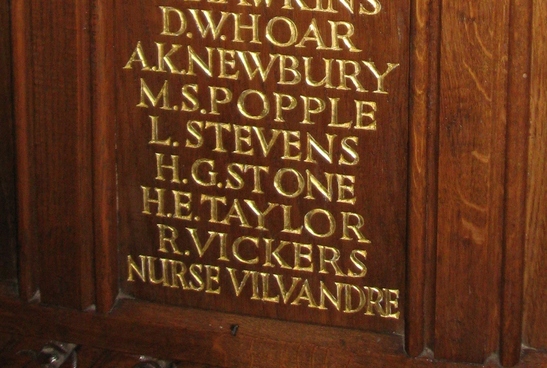 D.W.HOAR
A.K.NEWBURY
M.S.POPPLE
L. STEVENS
H.G.STONE
H.E.TAYLOR
R.VICKERS
NURSE VILVANDRE